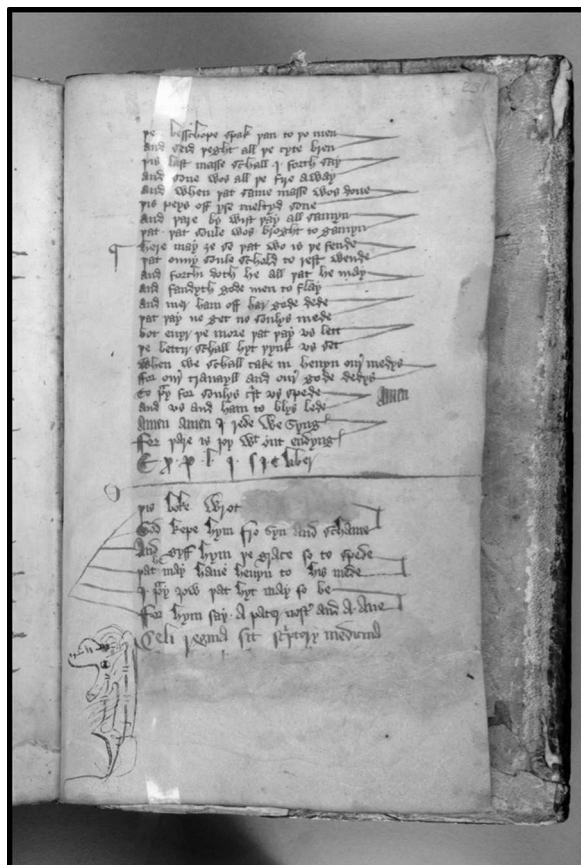 231
þe besschope spak þan to þo men
and seid þeght all þe cyte bren
þis last masse schall I forth say
and sone wos all þe fire away
and when þat same masse wos done
þis peys off yse meltyd sone
and þare by wist þay all samyn
þat þat soule wos broght to gamyn
¶ here may ȝe se þat wo is þe fende
þat onny soule schold to rest wende
and forthi doth he all þat he may
and fandyth gode men to flay
and mer ham off har gode dede
þat þay ne get no soulys mede
bot euyr þe more þat þay vs lett
þe bettyr schall hyt þynk vs get
when we schall take in heuyn our medys
ffor our trauayll and our gode dedys
to pray for soulys crist vs spede Amen
and vs and ham to blys lede
Amen Amen I rede we syng
For þare is joy wt out endyng
E . x . p . l . i . s i c liber
þis boke wrot
God kepe hym fro syn and schame
And gyff hym þe grace so to spede
þat may haue heuyn to his mede
I pray ȝow þat hyt may so be
For hym say . A pater nost and A . Aue
Celi regina sit scriptory medicina